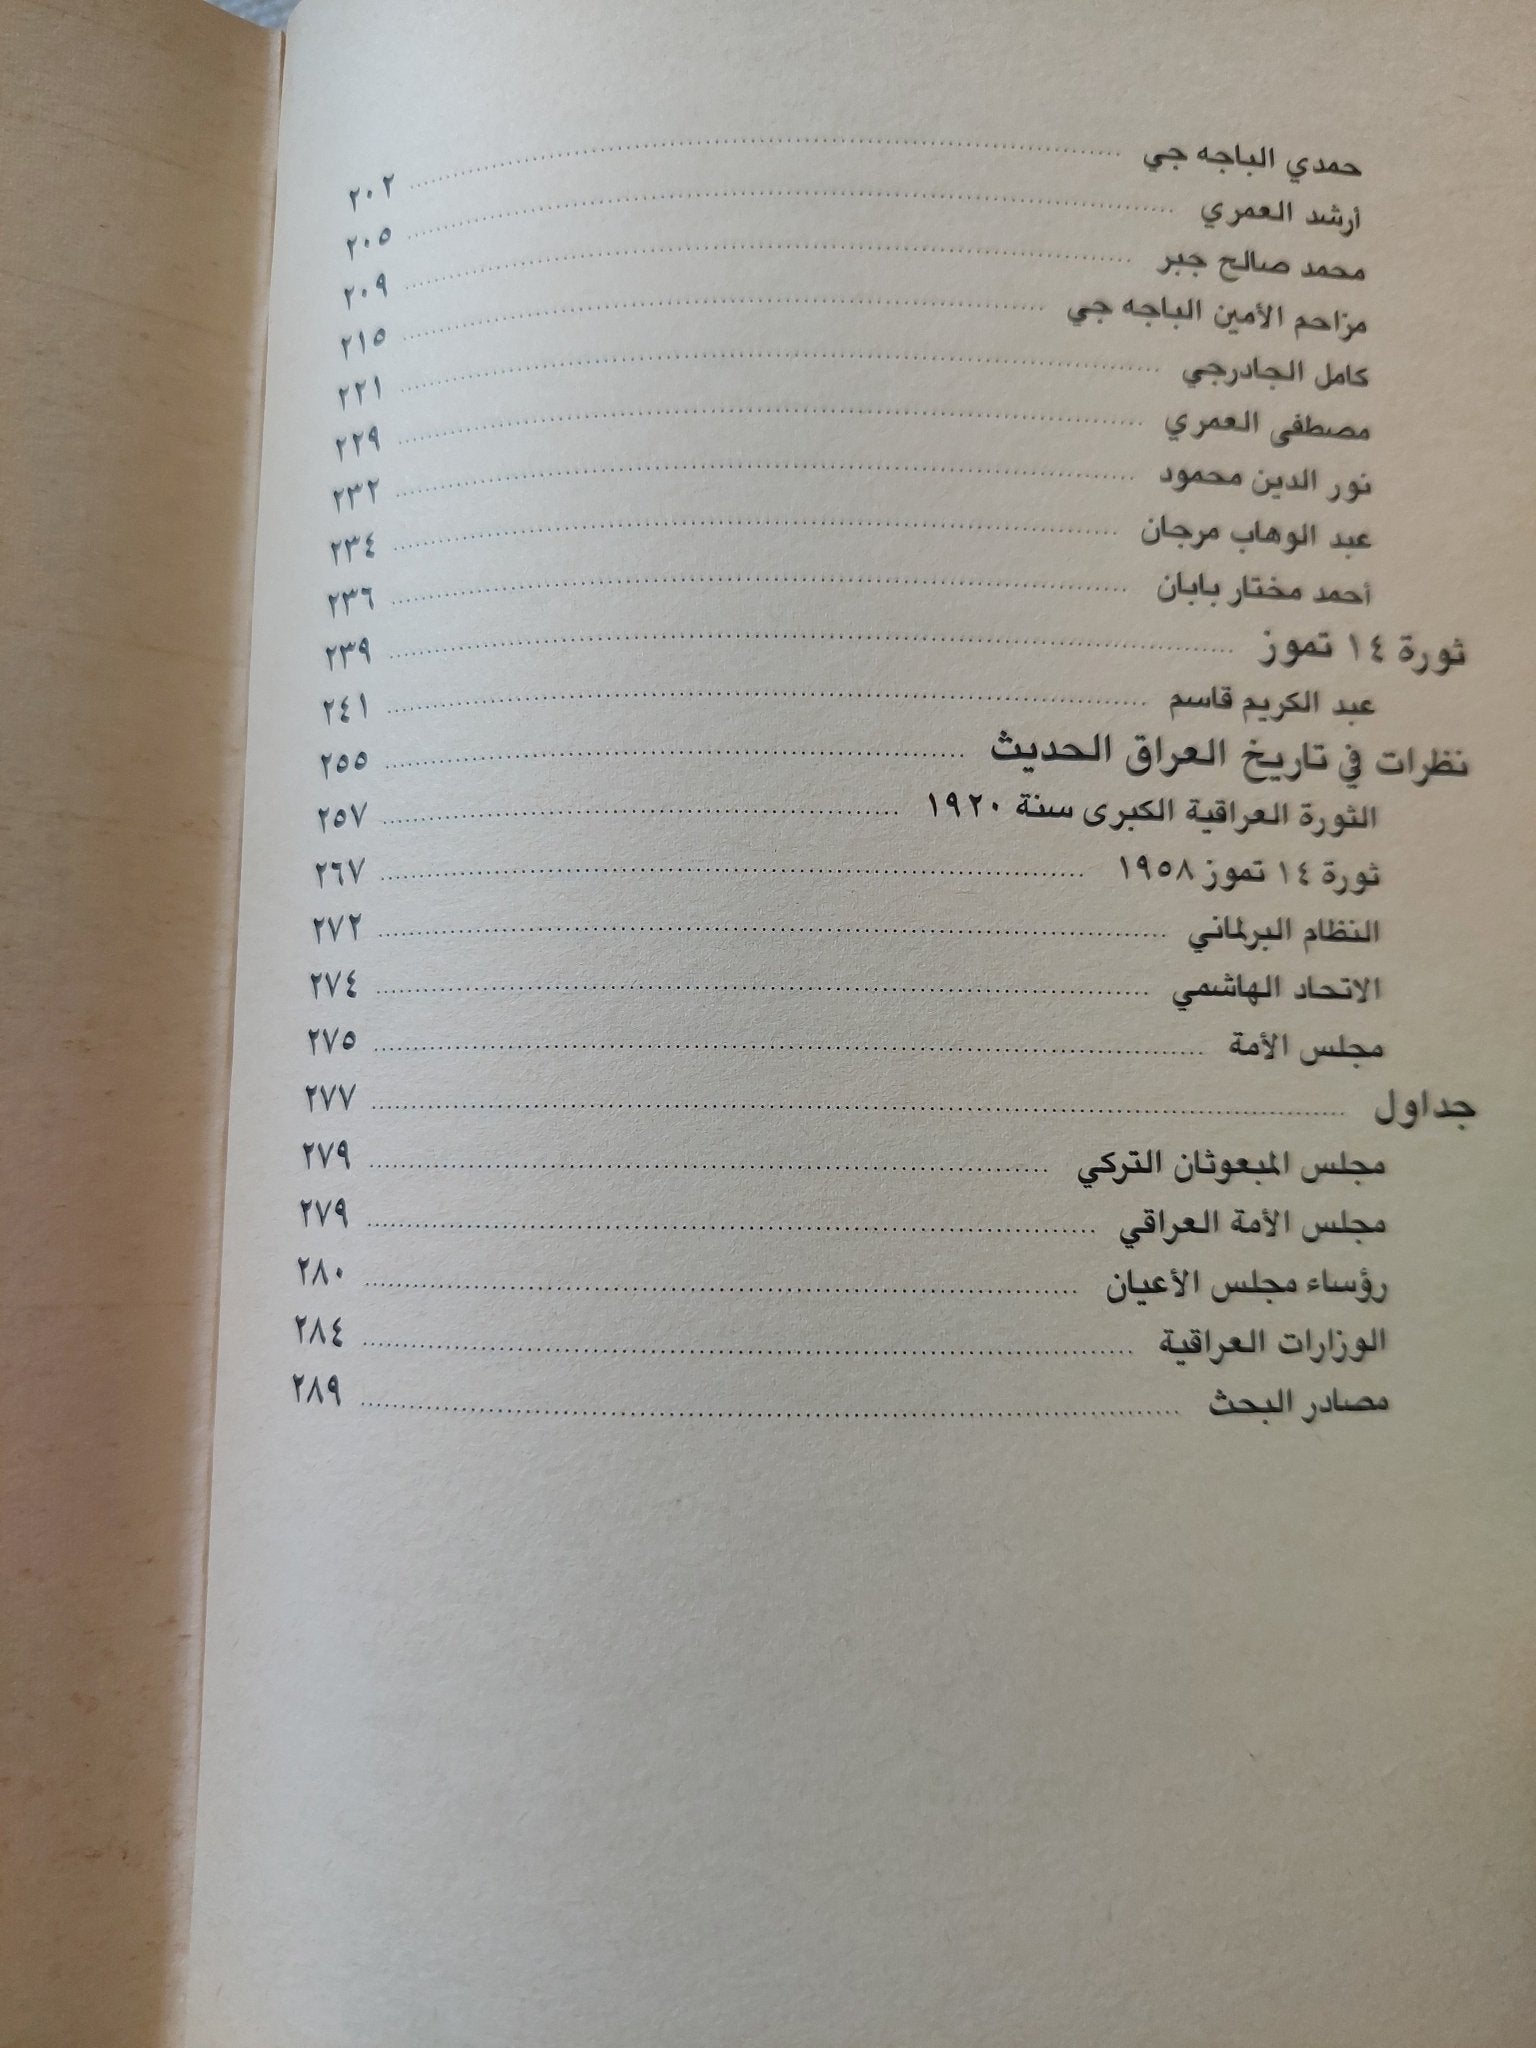 حمدي الباجه جي ........ ٢٠٢
أرشد العمري ........ ٢٠٥
محمد صالح جبر ........ ٢٠٩
مزاحم الأمين الباجه جي ........ ٢١٥
كامل الجادرجي ........ ٢٢١
مصطفى العمري ........ ٢٢٩
نور الدين محمود ........ ٢٣٢
عبد الوهاب مرجان ........ ٢٣٤
أحمد مختار بابان ........ ٢٣٦
ثورة ١٤ تموز ........ ٢٣٩
عبد الكريم قاسم ........ ٢٤١
نظرات في تاريخ العراق الحديث ........ ٢٥٥
الثورة العراقية الكبرى سنة ١٩٢٠ ........ ٢٥٧
ثورة ١٤ تموز ١٩٥٨ ........ ٢٦٧
النظام البرلماني ........ ٢٧٢
الاتحاد الهاشمي ........ ٢٧٤
مجلس الأمة ........ ٢٧٥
جداول ........ ٢٧٧
مجلس المبعوثان التركي ........ ٢٧٩
مجلس الأمة العراقي ........ ٢٧٩
رؤساء مجلس الأعيان ........ ٢٨٠
الوزارات العراقية ........ ٢٨٤
مصادر البحث ........ ٢٨٩